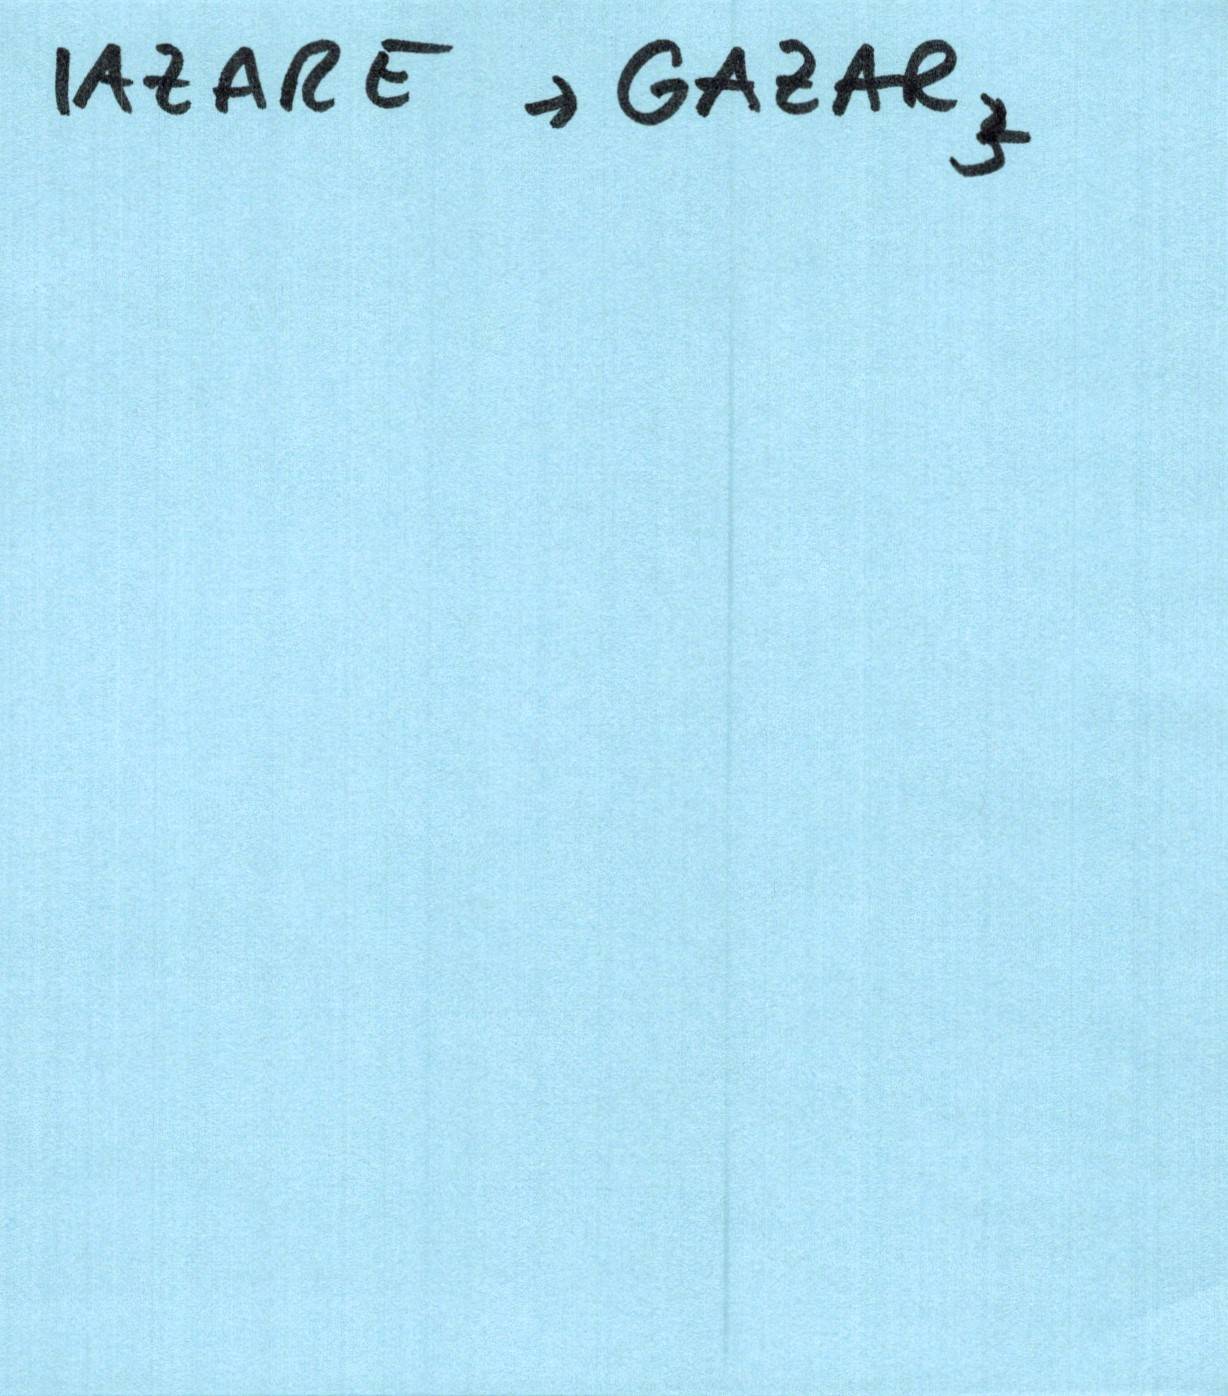 IAZARE → GAZAR₃